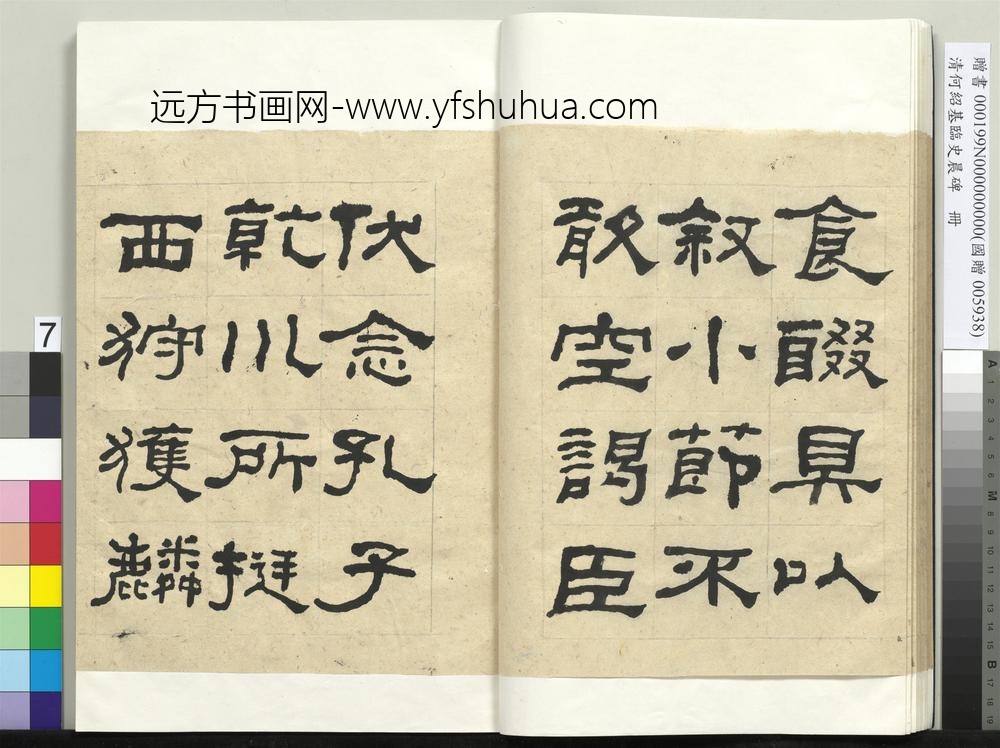 远方书画网-www.yfshuhua.com
贈書 000199N000000000(國贈 005938)
清何紹基臨史晨碑 冊
食醊具以
叙小節不
敢空謁臣
伏念孔子
乾川所挺
西狩獲麟
7
A 1 2 3 4 5 6 M 8 9 10 11 12 13 14 15 B 17 18 19